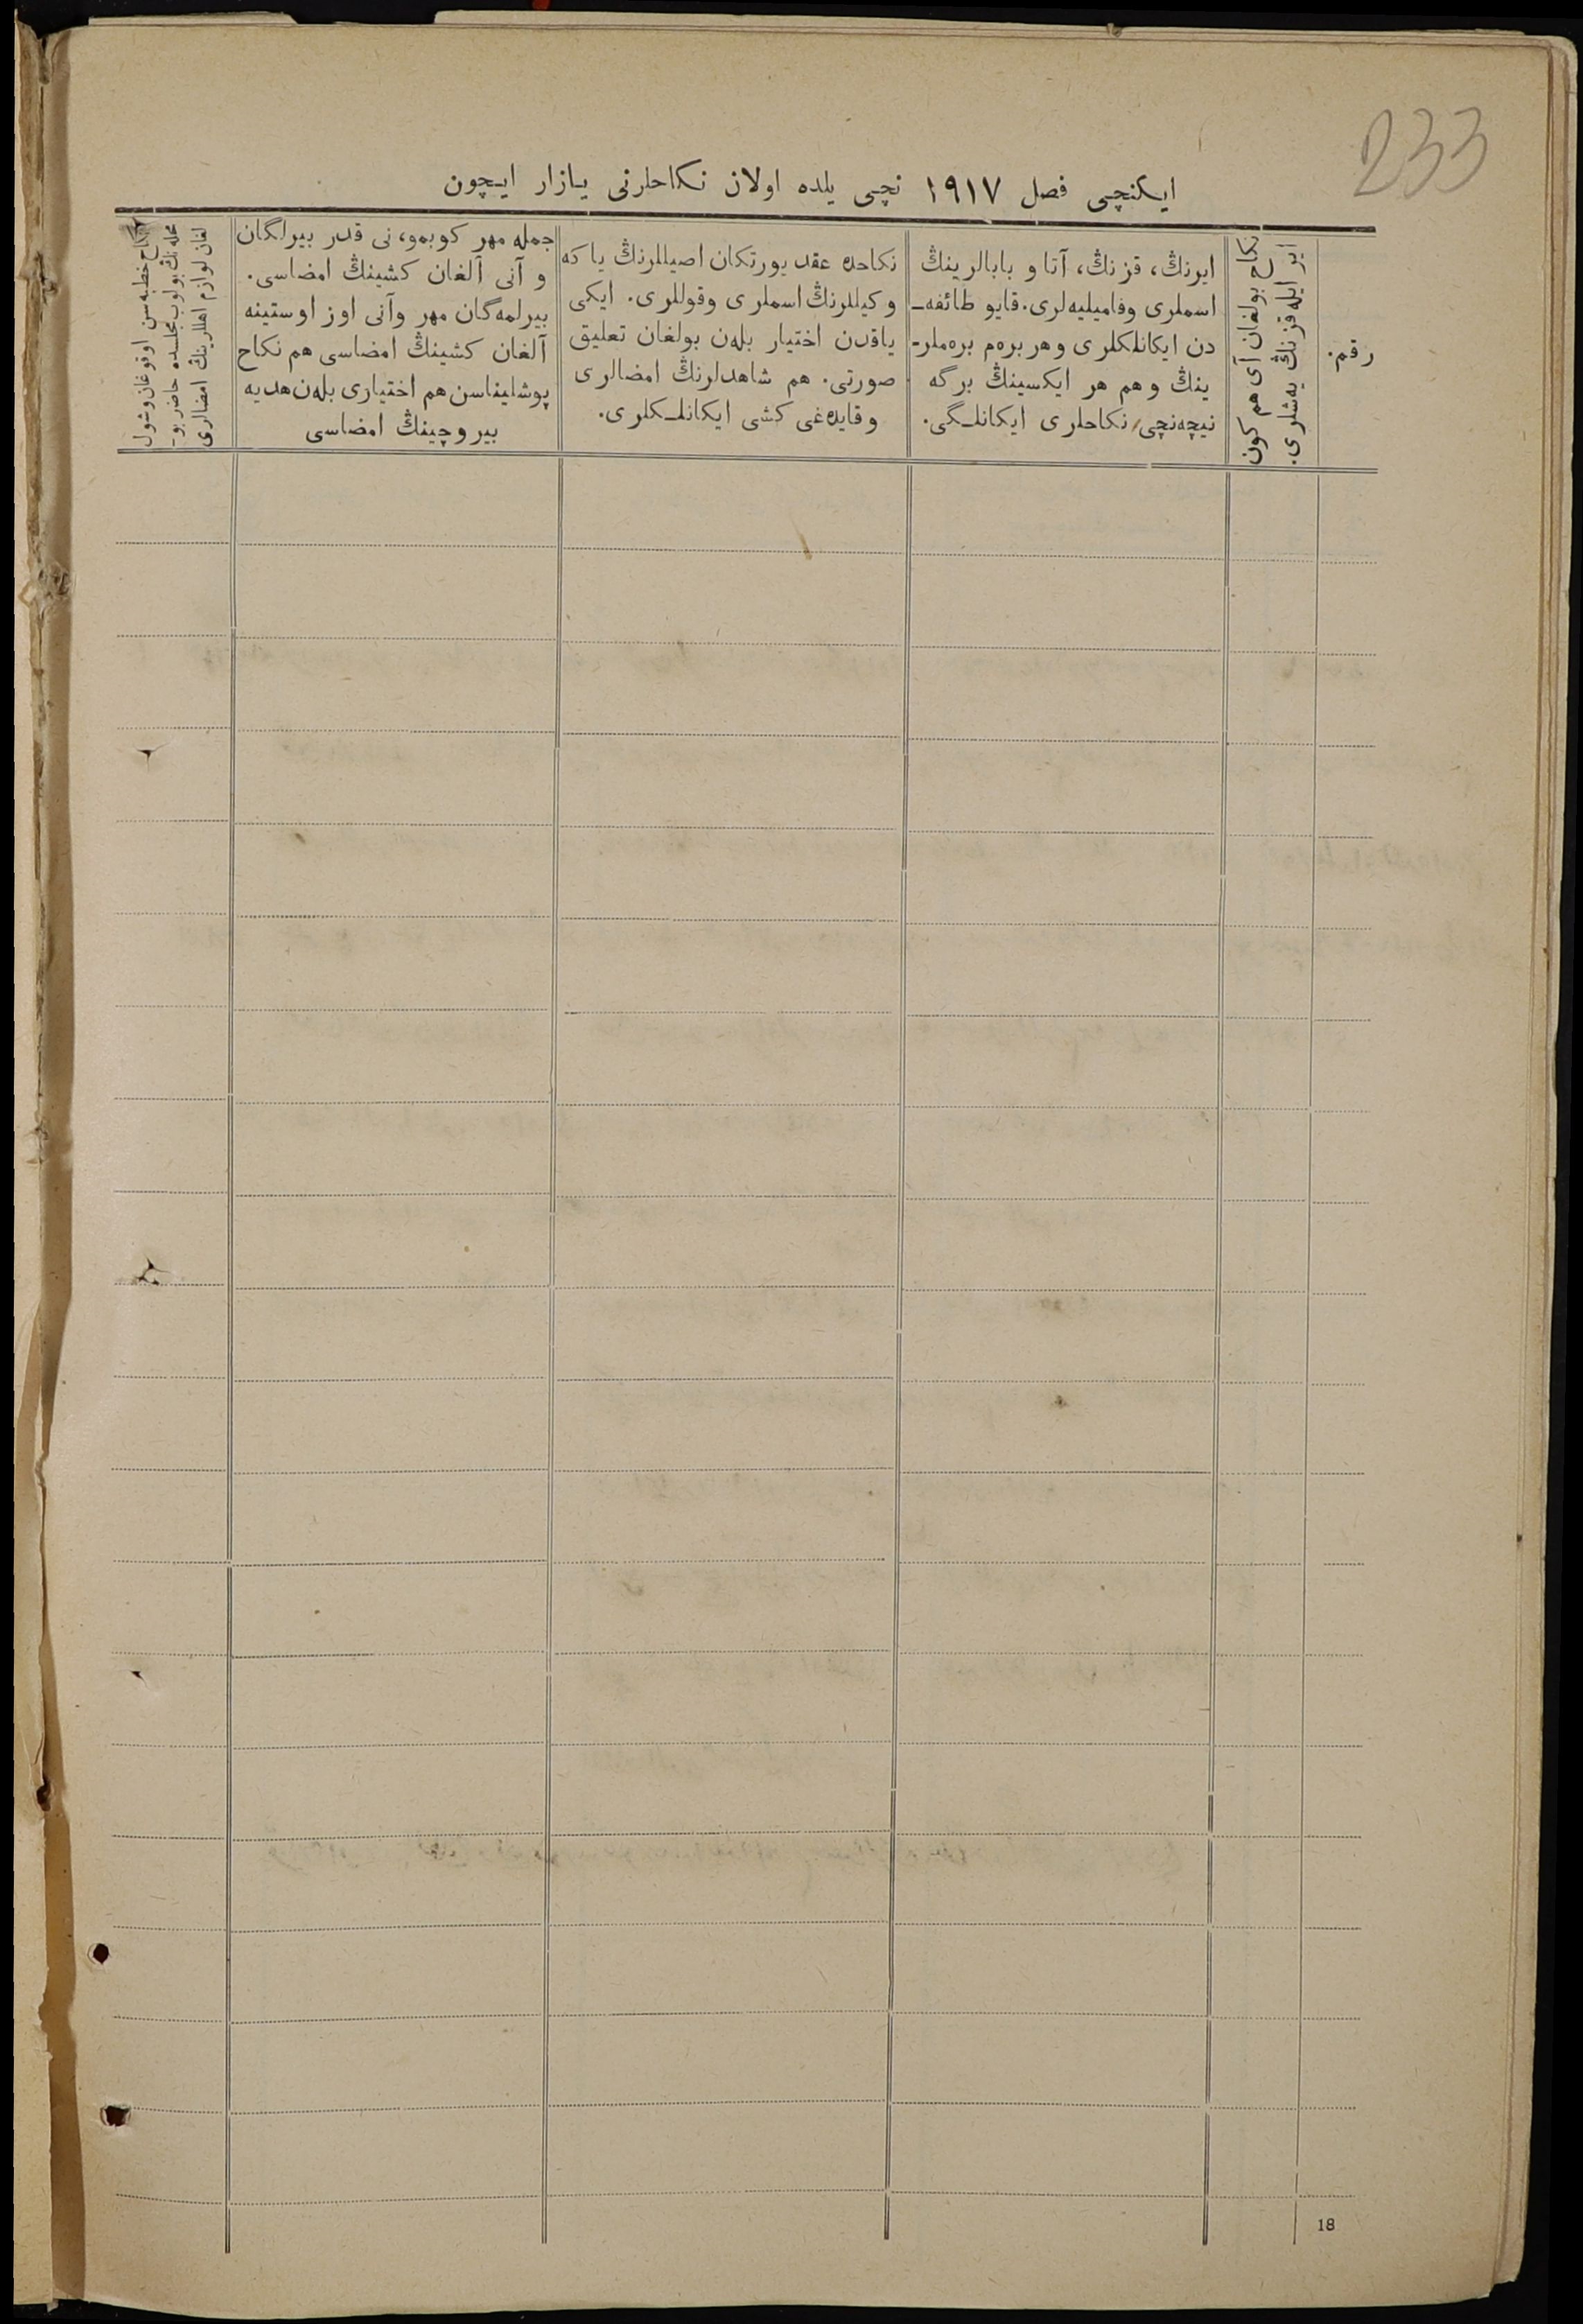 233
ایکنچی فصل ١٩١٧ نچی یلده اولان نکاحلرنی یازار ایچون
رقم.
ایر ایله قزنڭ یه‌شلری.
نکاح بولغان آی هم کون
ایرنڭ، قزنڭ، آتا و بابالرینڭ
اسملری وفامیلیه‌لری. قایو طائفه‌ـ
دن ایکانلکلری وهر بره‌م بره‌ملر-
ینڭ وهم هر ایکسینڭ برگه
نیچه‌نچی نکاحلری ایکانلـگی.
نکاحده عقد یورتکان اصیللرنڭ یا که
وکیللرنڭ اسملری وقوللری. ایکی
یاقدن اختیار بلەن بولغان تعلیق
صورتی. هم شاهدلرنڭ امضالری
وقایده‌غی کشی ایکانلـکلری.
جمله مهر کوبمو، نی قدر بیرلگان
و آنی آلغان کشینڭ امضاسی.
بیرلمه‌گان مهر وآنی اوز اوستینه
آلغان کشینڭ امضاسی هم نکاح
پوشلیناسن هم اختیاری بلەن هدیه
بیروچینڭ امضاسی
نکاح خطبه‌سن اوقوغان وشول
محله‌نڭ بولوب مجلسده حاضر بو-
لغان لوازم اهللرینڭ امضالری
18